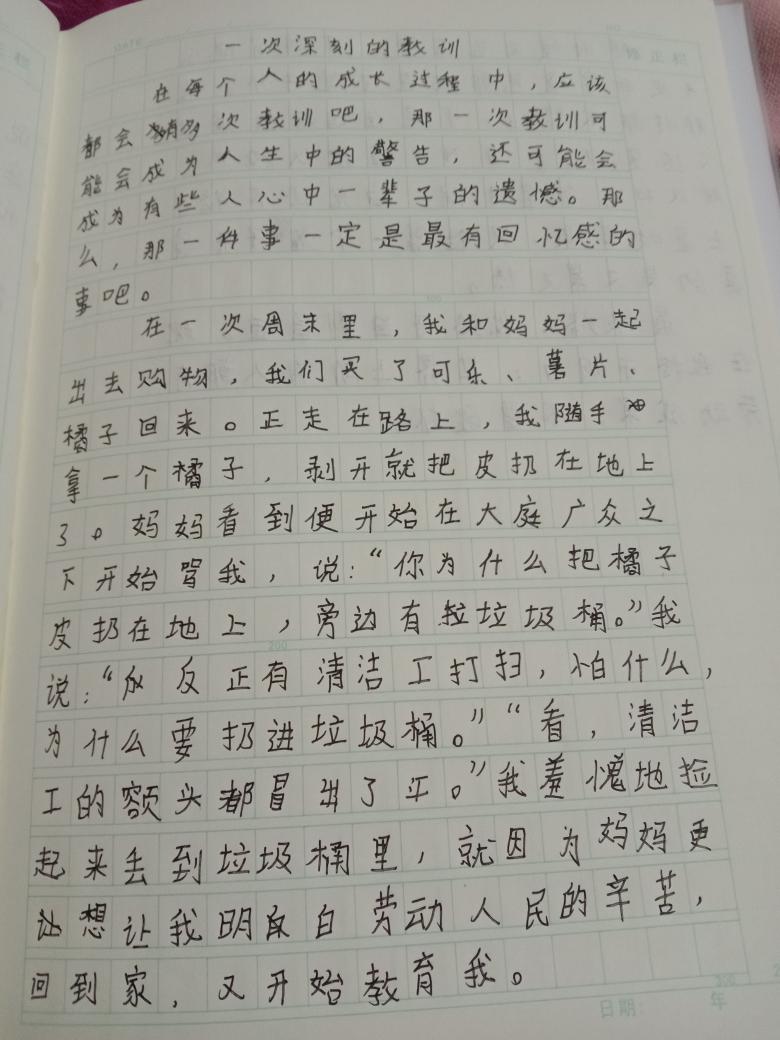 一次深刻的教训
在每个人的成长过程中，应该
都会有多次教训吧，那一次教训可
能会成为人生中的警告，还可能会
成为有些人心中一辈子的遗憾。那
么，那一件事一定是最有回忆感的
事吧。
在一次周末里，我和妈妈一起
出去购物，我们买了可乐、薯片、
橘子回来。正走在路上，我随手
拿一个橘子，剥开就把皮扔在地上
了。妈妈看到便开始在大庭广众之
下开始骂我，说：“你为什么把橘子
皮扔在地上，旁边有垃圾桶。”我
说：“反正有清洁工打扫，怕什么，
为什么要扔进垃圾桶。”“看，清洁
工的额头都冒出了汗。”我羞愧地捡
起来丢到垃圾桶里，就因为妈妈更
想让我明白劳动人民的辛苦，
回到家，又开始教育我。
日期： 年